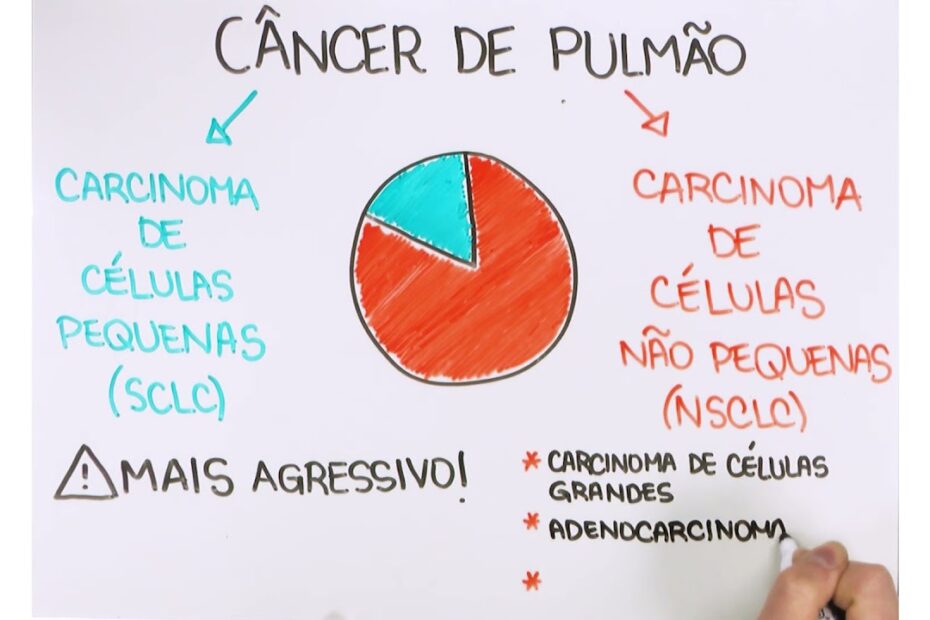 CÂNCER DE PULMÃO
CARCINOMA
DE
CÉLULAS
PEQUENAS
(SCLC)
MAIS AGRESSIVO!
CARCINOMA
DE
CÉLULAS
NÃO PEQUENAS
(NSCLC)
* CARCINOMA DE CÉLULAS
GRANDES
* ADENOCARCINOMA
*